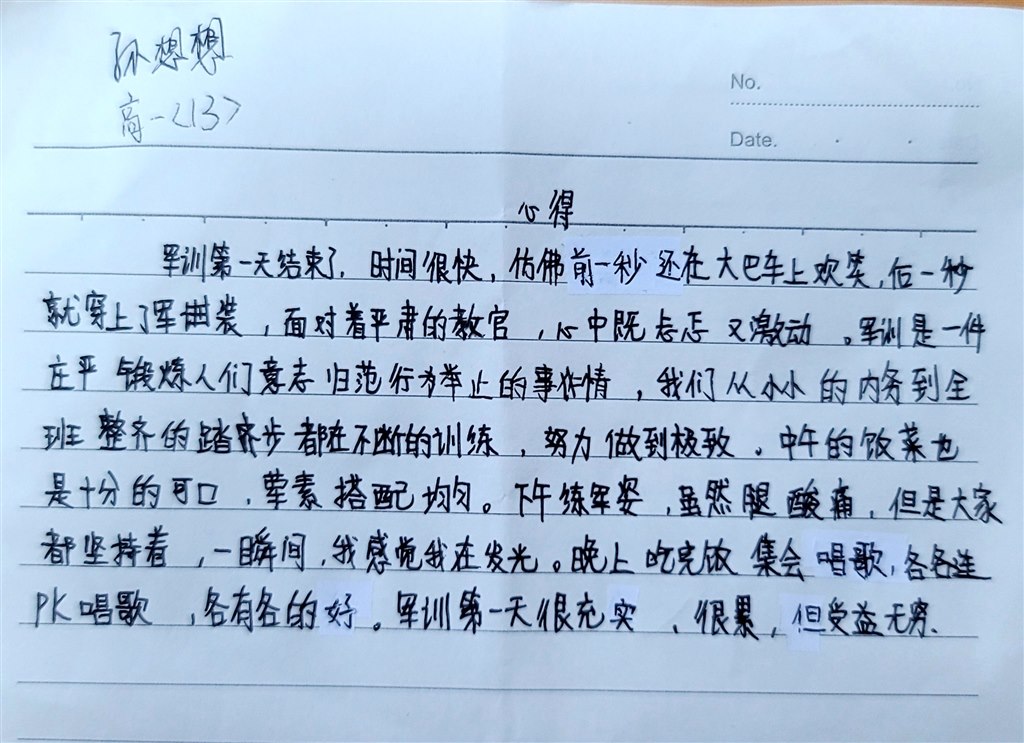 孙想想
高一<13>
No.
Date.
心得
军训第一天结束了，时间很快，仿佛前一秒还在大巴车上欢笑，后一秒
就穿上了军训装，面对着严肃的教官，心中既忐忑又激动。军训是一件
庄严锻炼人们意志归范行为举止的事情，我们从小小的内务到全
班整齐的踏齐步都在不断的训练，努力做到极致。中午的饭菜也
是十分的可口，荤素搭配均匀。下午练军姿，虽然腿酸痛，但是大家
都坚持着，一瞬间，我感觉我在发光。晚上吃完饭集会唱歌，各各连
PK唱歌，各有各的好。军训第一天很充实，很累，但受益无穷.